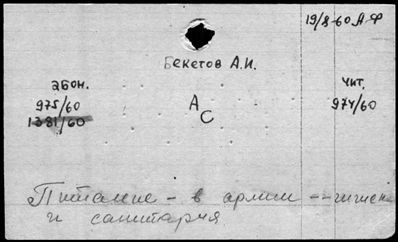 19/8-60 А Ф
Бекетов А.И.
абон.
975/60
1381/60
А
С
чит.
974/60
Питание - в армии -- гигиен
и санитария